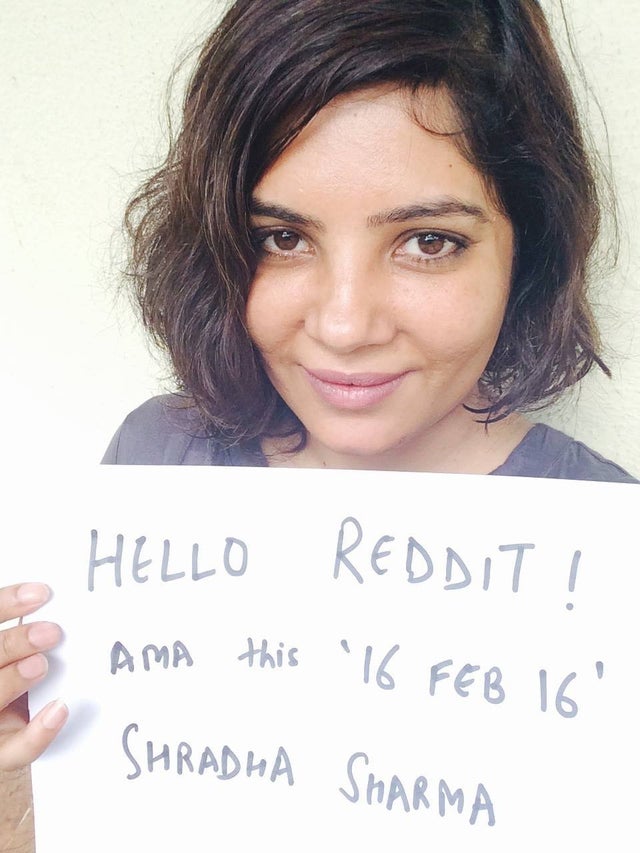 HELLO REDDIT!
AMA this '16 FEB 16'
SHRADHA SHARMA